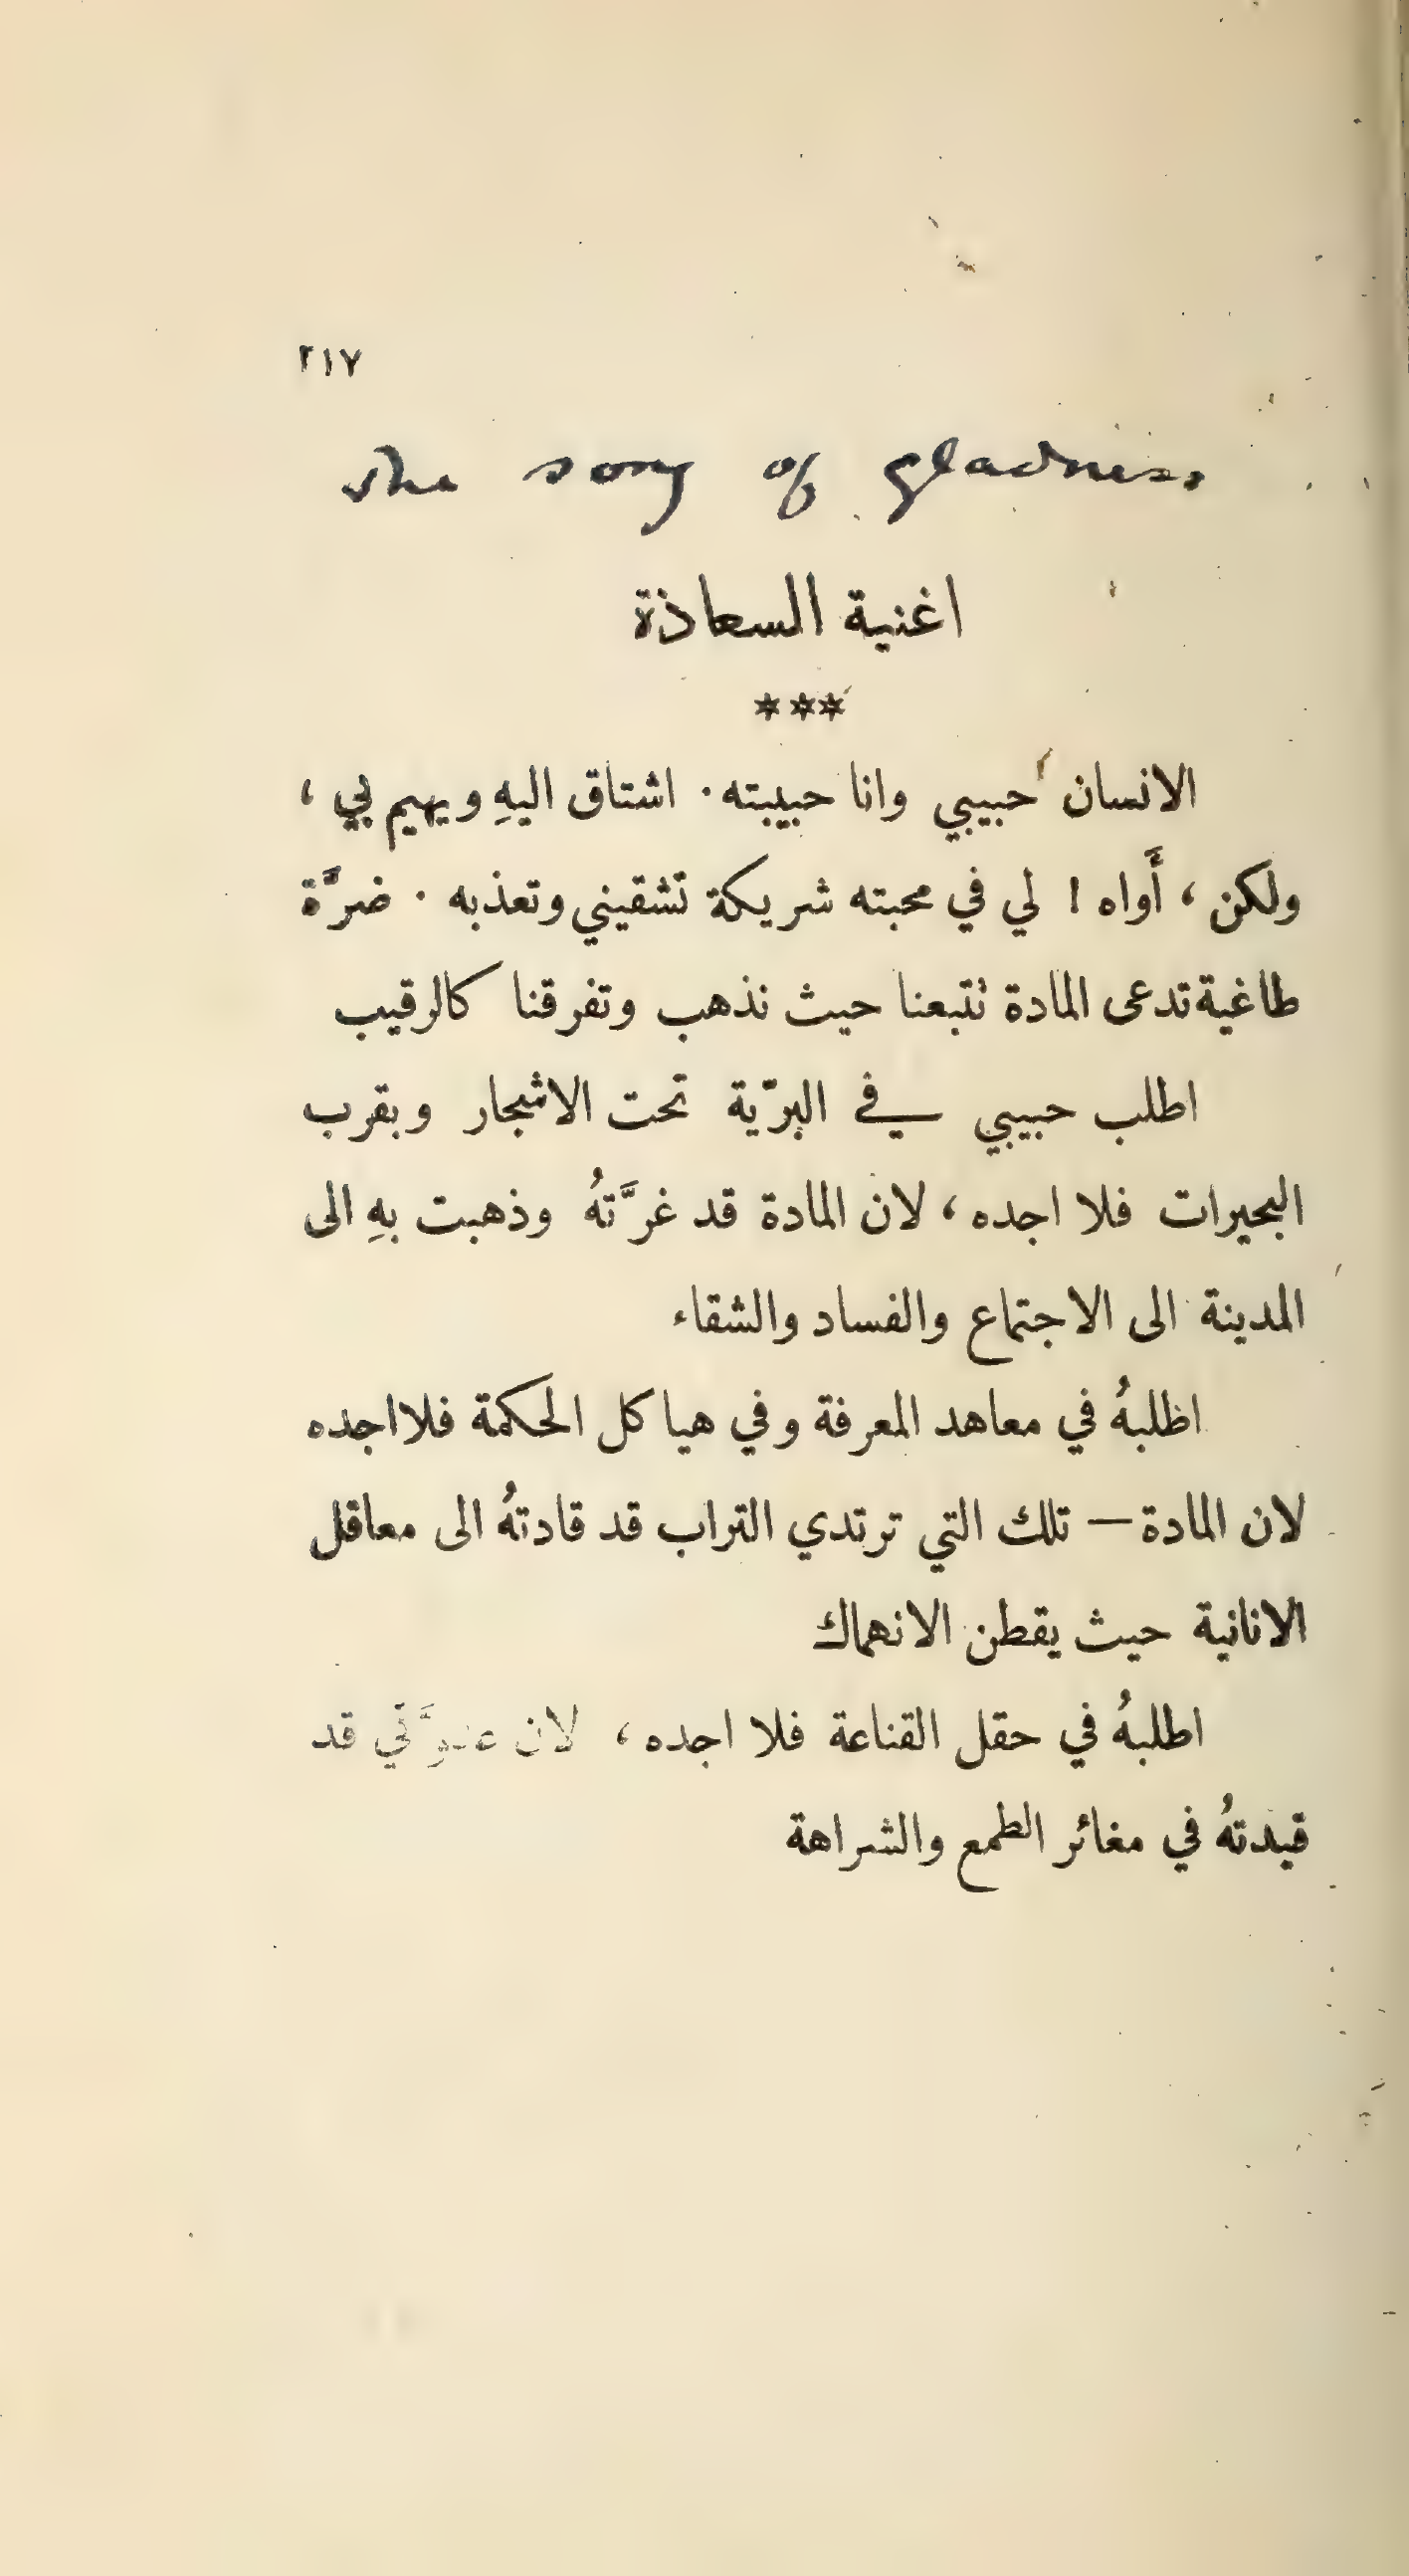 ٢١٧
The song of gladness
اغنية السعاذة
***
الانسان حبيبي وانا حبيبته. اشتاق اليهِ ويهيم بي ،
ولكن ، أَواه ! لي في محبته شريكة تشقيني وتعذبه . ضرَّة
طاغية تدعى المادة نتبعنا حيث نذهب وتفرقنا كالرقيب
اطلب حبيبي في البرّية تحت الاشجار وبقرب
البحيرات فلا اجده ، لان المادة قد غرَّتهُ وذهبت بهِ الى
المدينة الى الاجتماع والفساد والشقاء
اظلبهُ في معاهد المعرفة وفي هياكل الحكمة فلا اجده
لان المادة — تلك التي ترتدي التراب قد قادتهُ الى معاقل
الانانية حيث يقطن الانهماك
اطلبهُ في حقل القناعة فلا اجده ، لان عدوَّتي قد
قيدتهُ في مغائر الطمع والشراهة